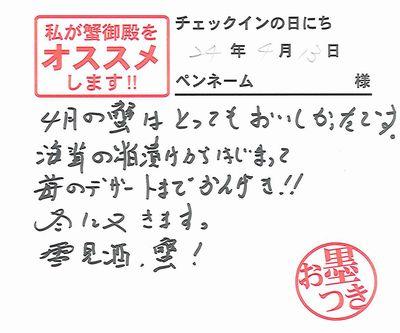 私が蟹御殿を
オススメ
します!!
チェックインの日にち
24年4月13日
ペンネーム 様
4月の蟹はとってもおいしかったです。
海茸の粕漬けからはじまって
苺のデザートまでかんげき!!
冬に又きます。
雪見酒、蟹!
お墨つき